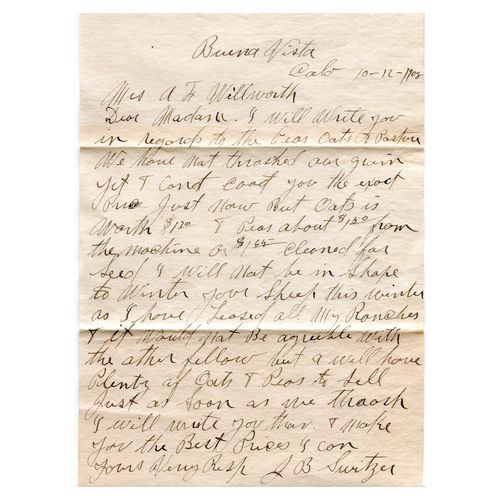 Buena Vista
Colo 10-12-1908
Mrs A F Willworth
Dear Madam. I Will Write you
in regards to the Peas Oats & Pasture
We have Not thrashed our grain
yet & Cant Coat you the exact
Price Just Now But Oats is
Worth $1.20 & Peas about $1.50 from
the machine or $1.65 Cleaned for
Seed I Will Not be in Shape
to Winter your Sheep this winter
as I have Leased all My Ranches
& it Would Not Be agreeble With
the other fellow but a Will have
Plenty of Oats & Peas to Sell
Just as Soon as we thrash
I will write you than & Make
you the Best Prices I Can
Yours Very Resp J B Switzer